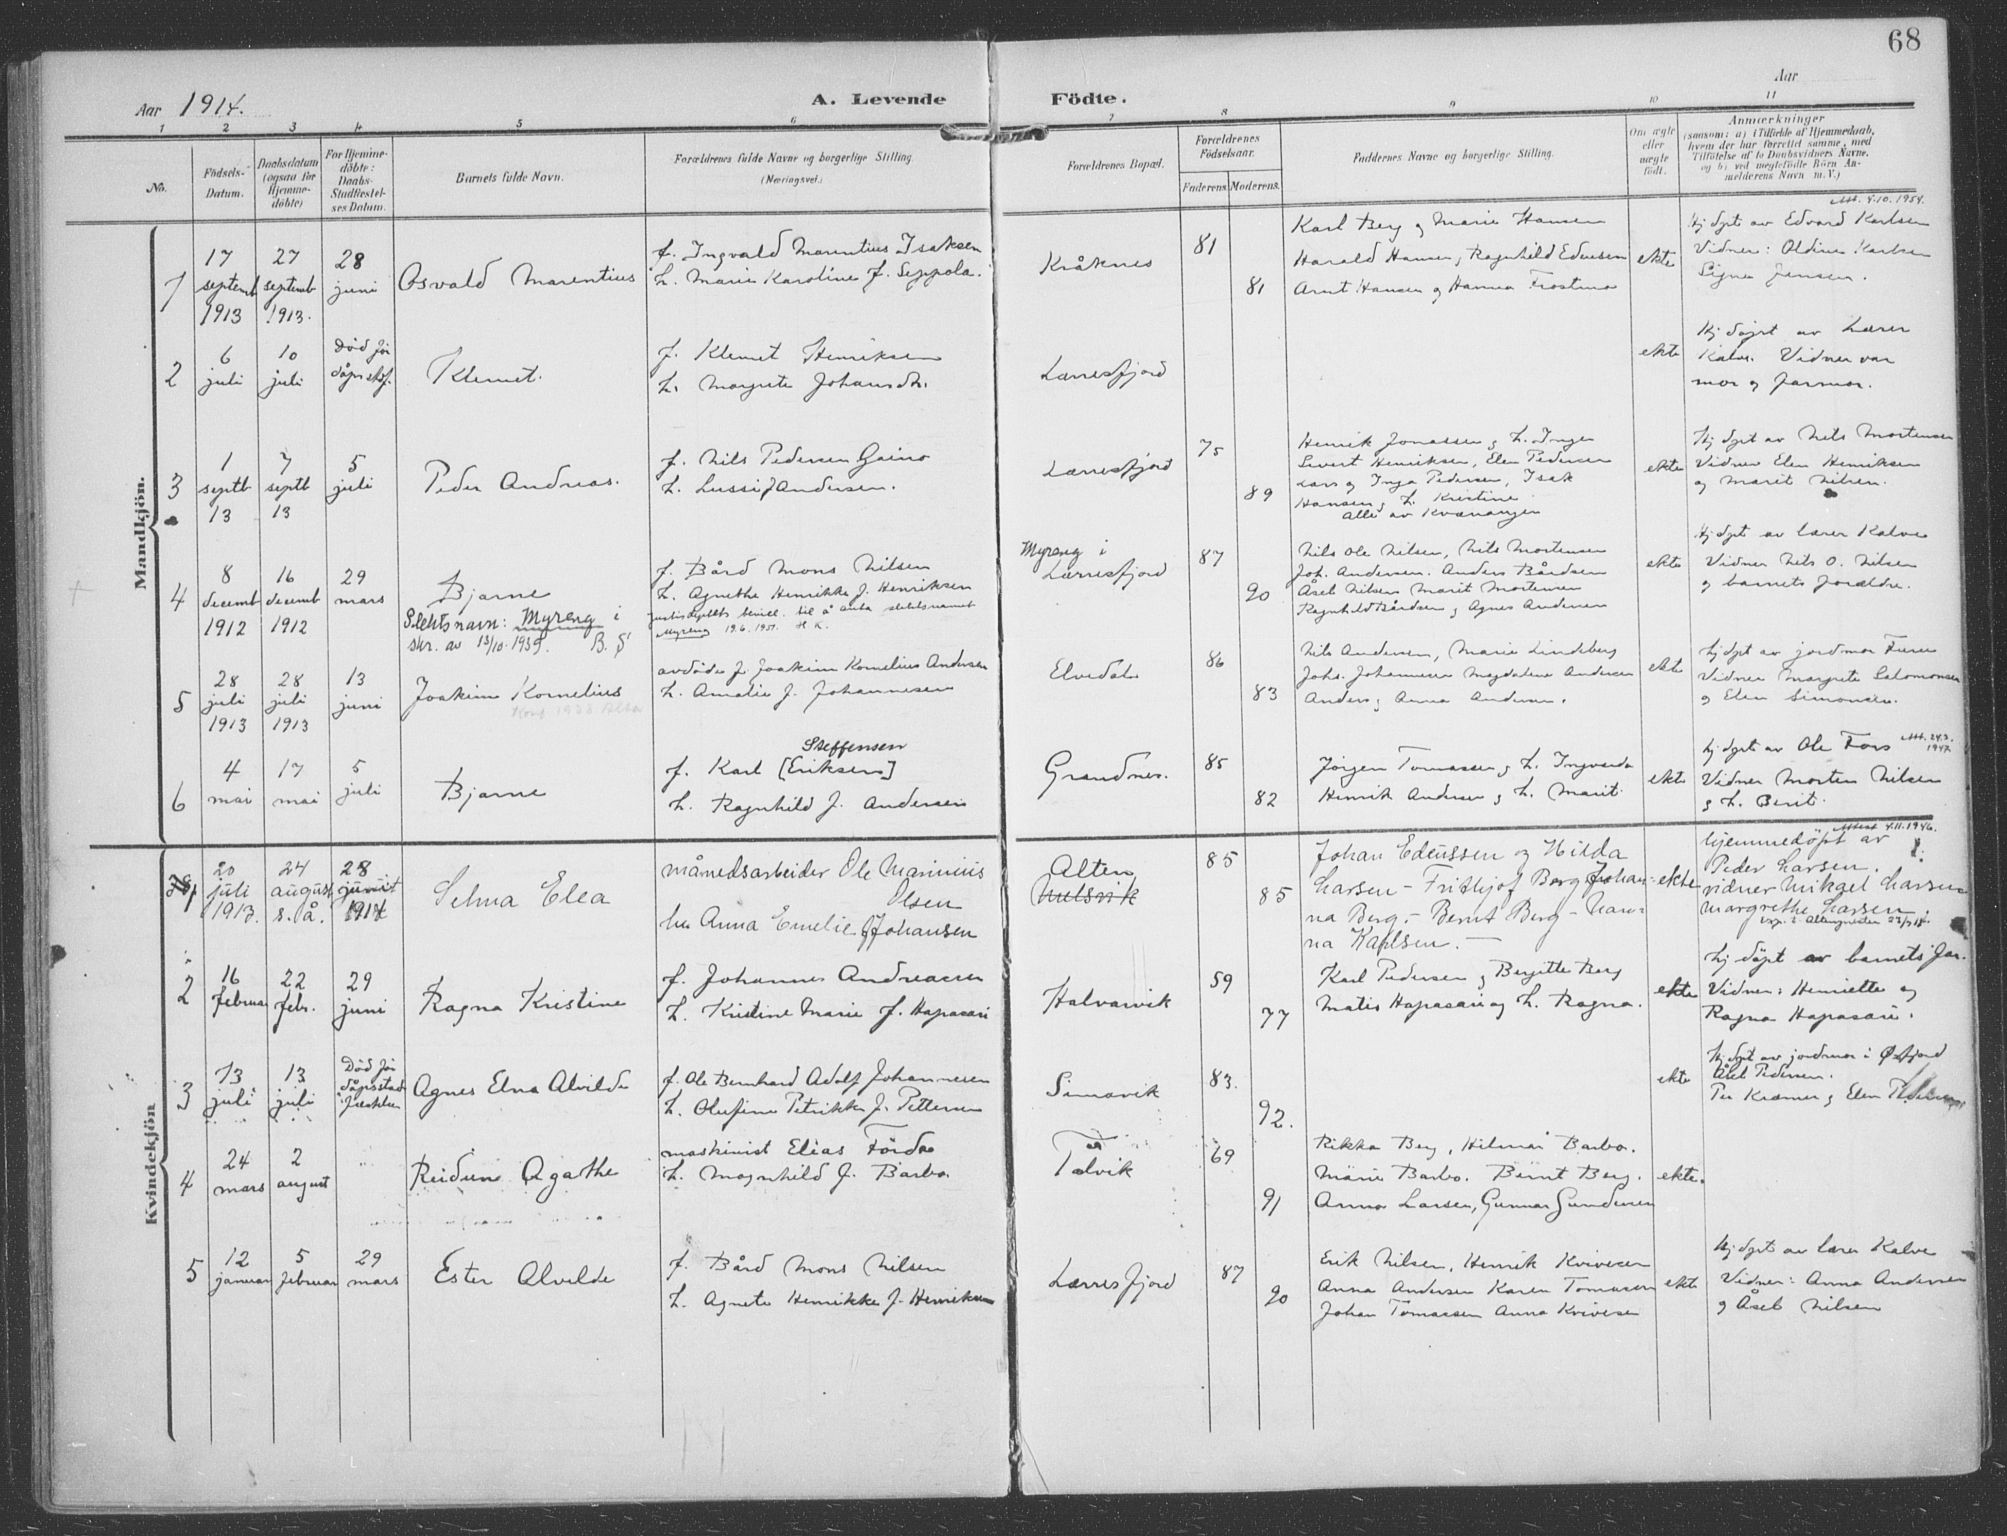 68
Aar 1914.
A. Levende Födte.
Aar
1 2 3 4 5 6 7 8 9 10 11
No.
Födsels-Datum.
Daabsdatum (ogsaa for Hjemmedöbte)
For Hjemmedöbte: Daabs-Stadfæstelses Datum.
Barnets fulde Navn.
Forældrenes fulde Navne og borgerlige Stilling. (Næringsvei.)
Forældrenes Bopæl.
Forældrenes Födselsaar.
Faderens. Moderens.
Faddernes Navne og borgerlige Stilling.
Om ægte eller uægte födt.
Anmærkninger
(saasom: a) i Tilfælde af Hjemmedaab,
hvem der har forrettet samme, med
Tilföielse af to Daabsvidners Navne,
og b) ved uegtefödte Börn An-
melderens Navn m. V.)
Mandkjön.
Att. 4.10.1954.
1 17 septemb 1913 27 septemb 1913. 28 juni Osvald Marentius
f. Ingvald Marentius Isaksen
h. Marie Karoline f. Seppola.
Kråknes 81 81
Karl Berg og Marie Hansen
Harald Hansen, Ragnhild
Arnt Hansen og Hanna
ekte
Hj døpt av Edvard Karlsen
Vidner: Oldine Karlsen
Signe Jensen.
2 6 juli 10 juli Død før dåpsstadf. Klemet.
f. Klemet Henriksen
h. Margrete Johansdtr.
Lærresfjord
ekte
Hj døpt av Lærer
Kalve. Vidner var
mor og farmor.
3 1 septb 13 7 septb 13 5 juli Peder Andreas.
f. Nils Pedersen Gaino
h. Lussi f Andersen.
Lærresfjord 75 89
Henrik Jonassen og h. Inger
Sivert Henriksen, Elen Pedersen
Lars og Inga Pedersen, Isak
Hansen og h. Kristine
Alle av Kvænangen
ekte
Hj døpt av Nils Mortensen
Vidner Elen Henriksen
og Marit Nilsen.
4 8 decemb 1912 16 decemb 1912 29 mars Bjarne
Slektsnavn: Myreng i
skr. av 13/10.1939. B. S
f. Bård Mons Nilsen
h. Agnethe Henrikke f. Henriksen
bevill. til å anta slektsnavnet
Myreng 19.6.1951. H K.
Myreng i
Lærresfjord 87 90
Nils Ole Nilsen, Nils Mortensen
Joh. Andersen. Anders Bårdsen
Åsel Nilsen Marit Mortensen
Ragnhild Bårdsen og Agnes Andersen
ekte
Hj døpt av lærer Kalve
Vidner Nils O. Nilsen
og barnets foreldre.
5 28 juli 1913 28 juli 1913 13 juni Joakim Kornelius
Konf 1928 Alta
avdøde f. Joakim Kornelius Andersen
h. Amalie f. Johannesen
Elvedal 86 83
Nils Andersen, Marie Lindeberg
Johs. Johannesen Magdalene Andersen
Anders og Anna Andersen.
ekte
Hj døpt av jordmor
Vidner Margrete Salomonsen
og Elen Simonsen.
6 4 mai 17 mai 5 juli Bjarne
Steffensen
f. Karl [Eriksen]
h. Ragnhild f. Andersen
Grandnes. 85 82
Jørgen Tomassen og h. Ingvarda
Henrik Andersen og h. Marit
ekte
Hj døpt av Ole Fors Att. 24.3. 1947.
Vidner Morten Nilsen
og h. Berit.
Kvindekjön
Attest 4.11.1946.
1 20 juli 1913. 24 august s. å. 28 juni 1914 Selma Elea
månedsarbeider Ole Marinius
Olsen
hu Anna Emelie f Johansen
Alten
85 85
Johan Edeussen og Hilda
Larsen - Fridthjof Berg Johan-
na Berg. - Bernt Berg - Han-
na Karlsen. -
ekte
hjemmedöpt av
Peder Larsen.
vidner Mikael Larsen
Margrethe Larsen
2 16 februar 22 febr. 29 juni Ragna Kristine
f. Johannes Andreassen
h. Kristine Marie f. Hapasari
Halvarvik 59 77
Karl Pedersen og Bergitte Berg
Matis Hapasari og h. Ragna.
ekte
Hj døpt av barnets far.
Vidner: Henriette og
Ragna Hapasari.
3 13 juli 13 juli Død før dåpsstad- Agnes Elna Alvilde
f. Ole Bernhard Adolf Johannesen
h. Olufine Petrikke f. Pettersen
Simavik 83. 92.
ekte
Hj døpt av jordmor i Øxfjord
Åsel Pedersen.
Per Kræmer og Elen
4 24 mars 2 august Reidun Agathe
maskinist Elias Förde
h. Magnhild f. Barbo.
Talvik 69 91
Rikka Berg, Hilmar Barbo.
Marie Barbo. Bernt Berg.
Anna Larsen, Gunnar Gundersen
ekte.
5 12 januar 5 februar 29 mars Ester Alvilde
f. Bård Mons Nilsen
h. Agnete Henrikke f. Henriksen
Lærresfjord 87 90
Erik Nilsen, Henrik Kvivesen
Anna Andersen Karen Tomassen
Johan Tomassen Anna Kvivesen
ekte
Hj døpt av lærer Kalve
Vidner: Anna Andersen
og Åsel Nilsen